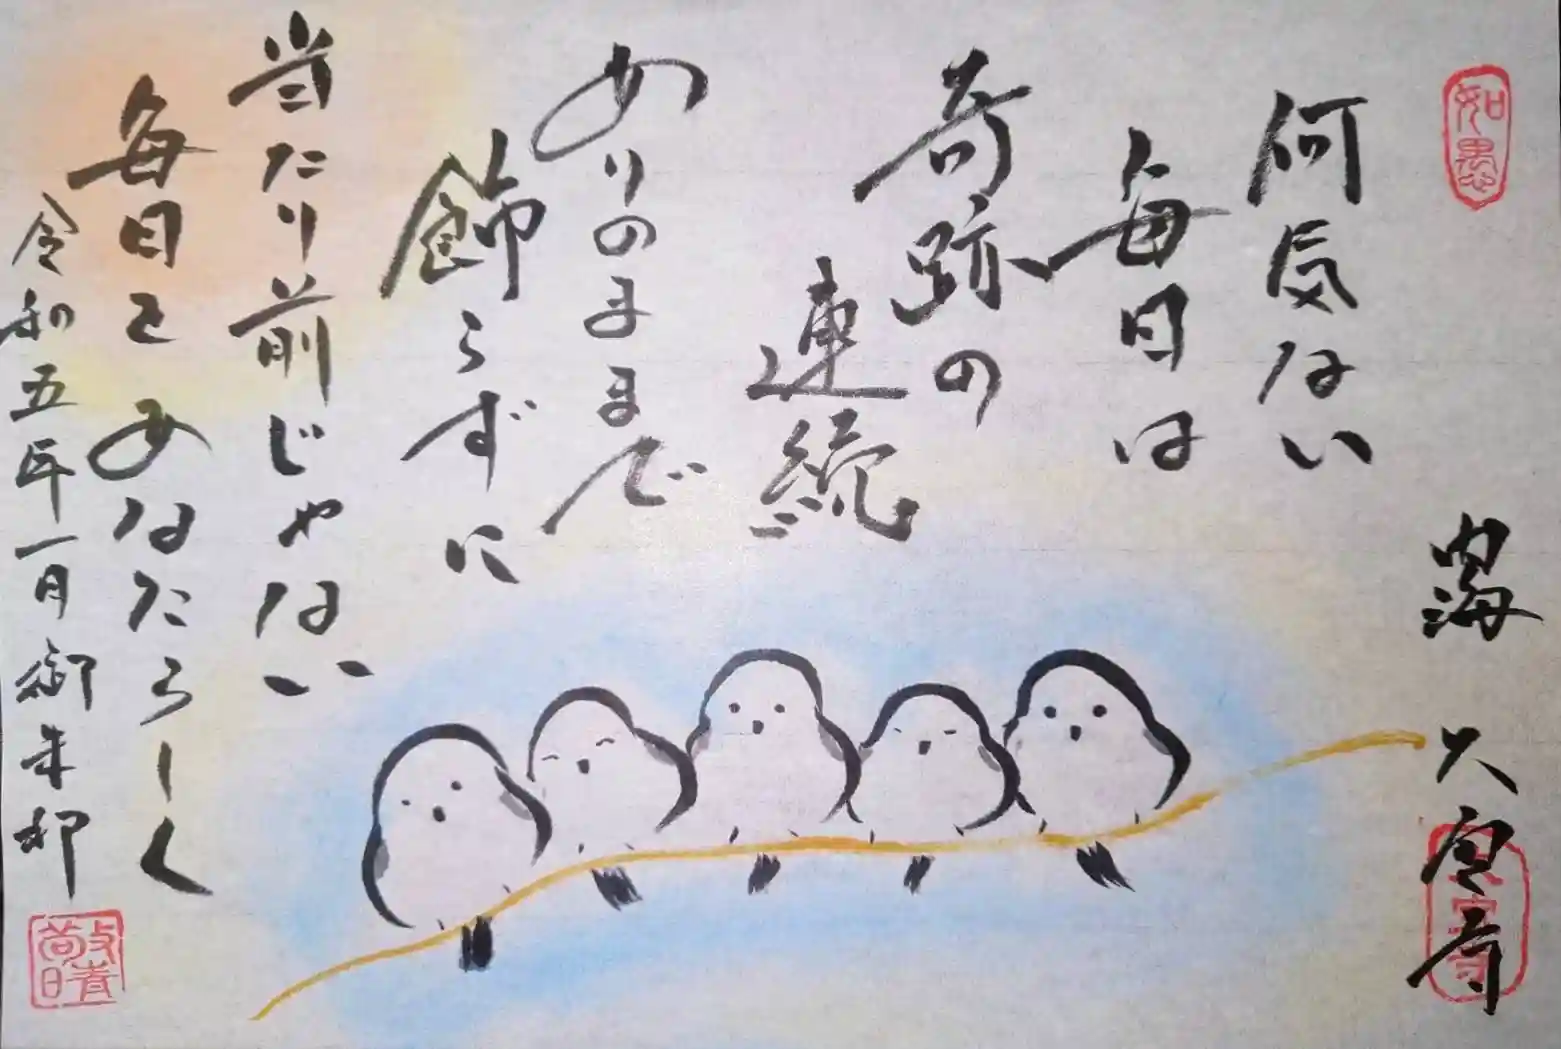 如愚
内海
大宝寺
何気ない
毎日は
奇跡の
連続
ありのままで
飾らずに
当たり前じゃない
毎日をあなたらしく
令和五年一月御朱印
敬晴